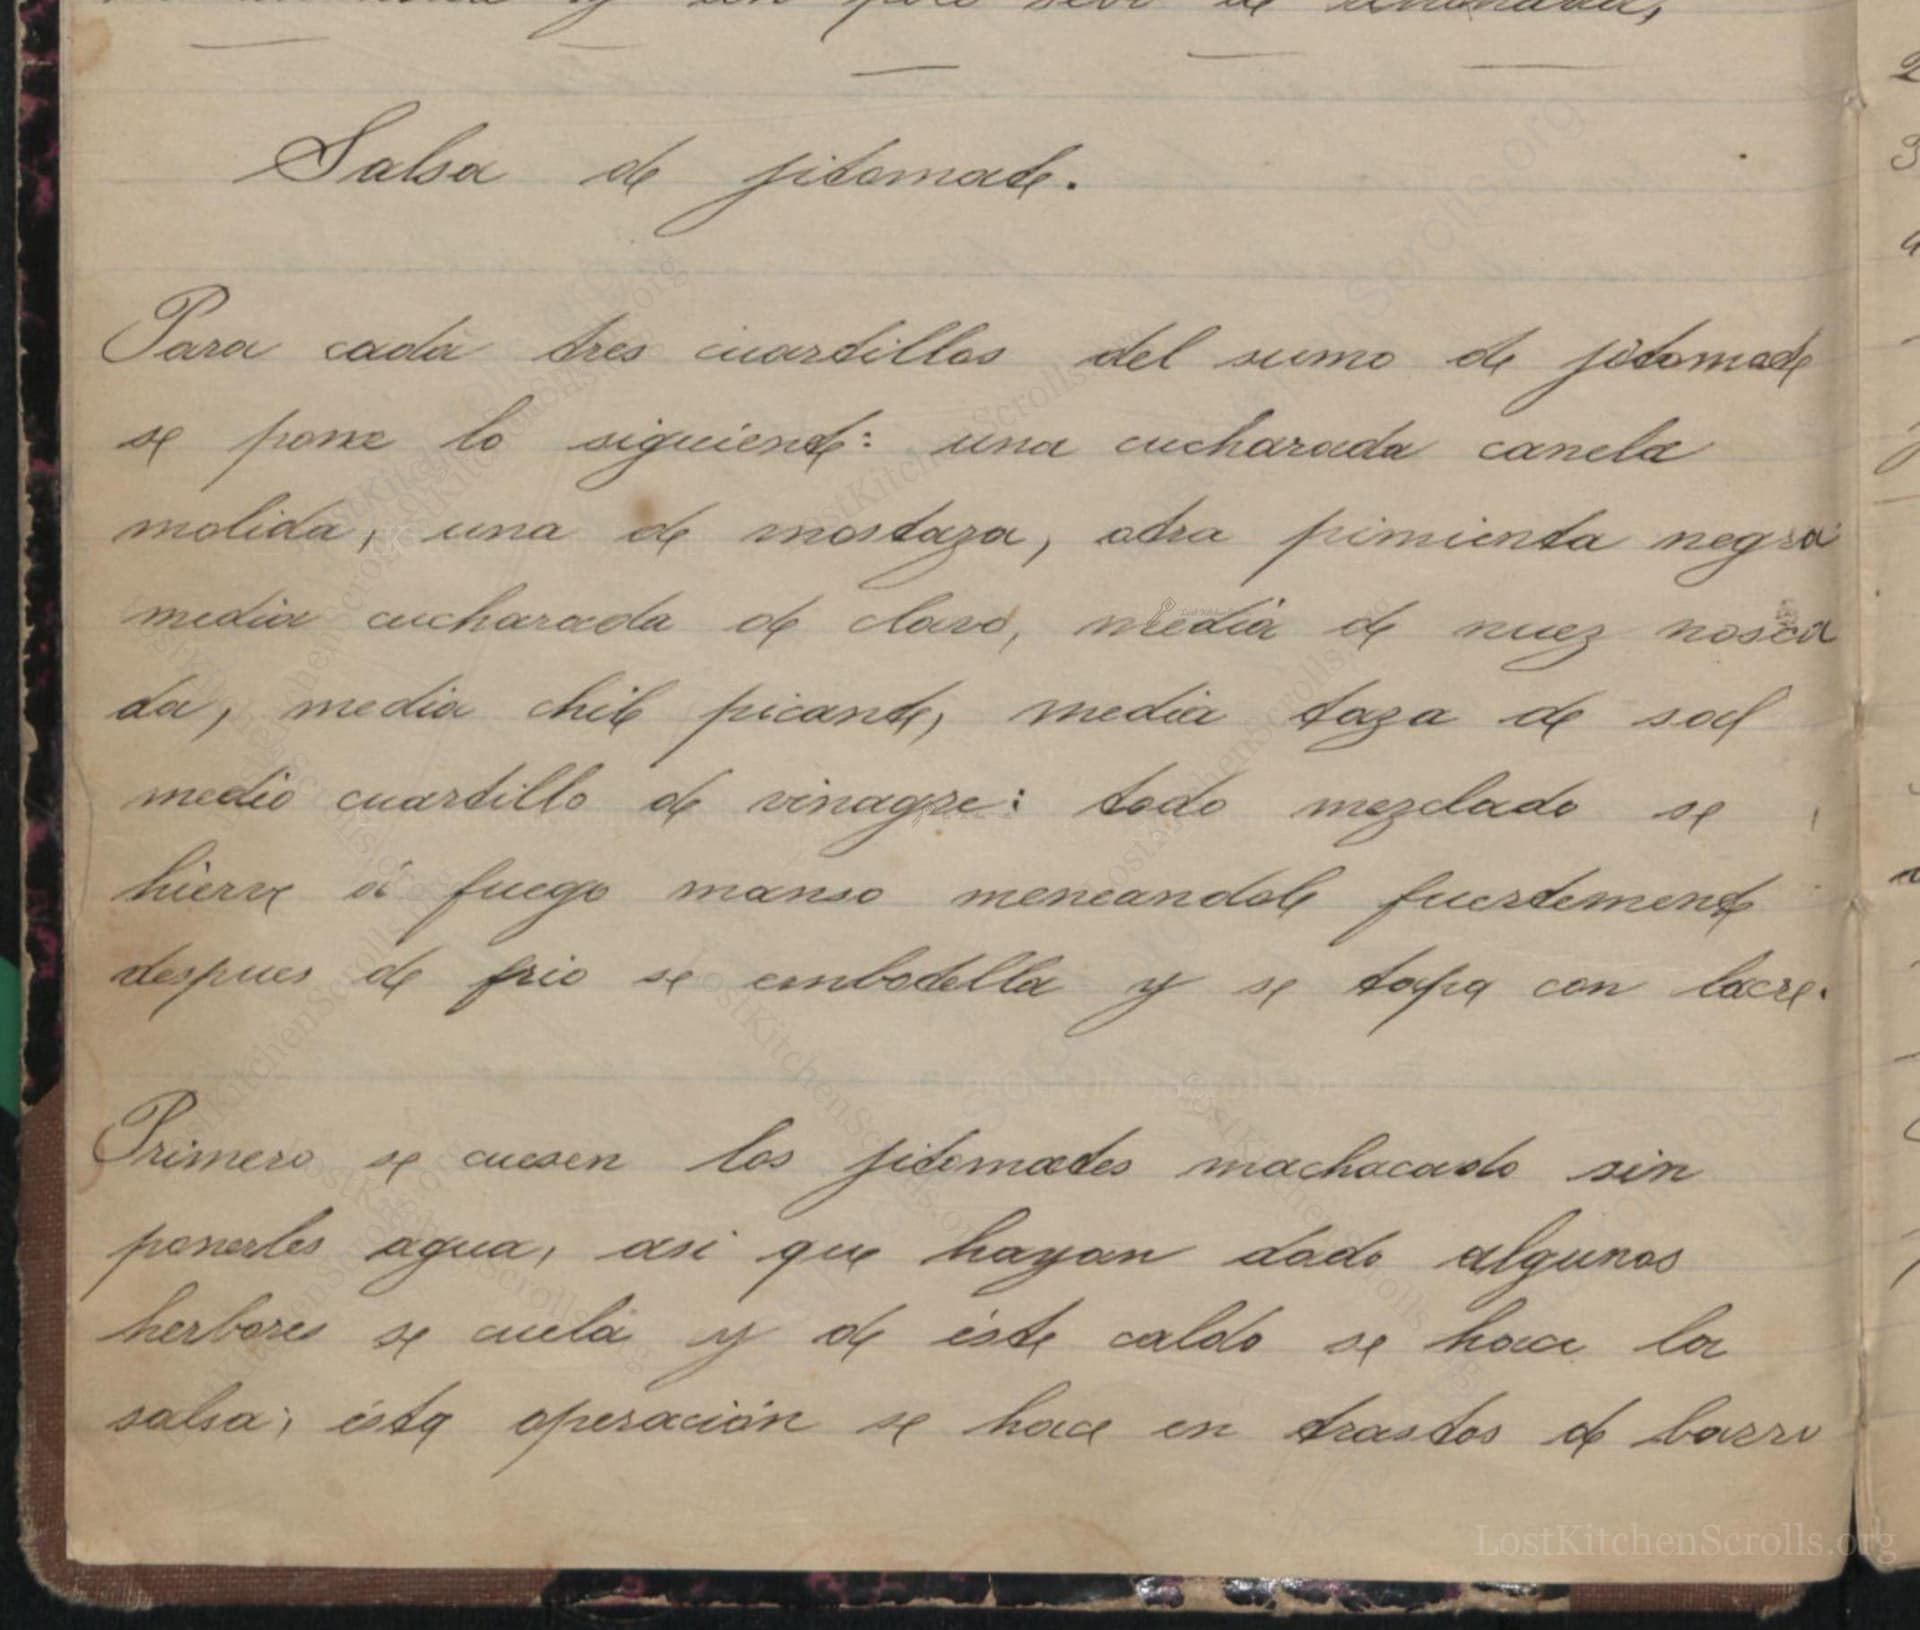 Salsa de jitomate.
Para cada tres cuartillos del sumo de jitomate
se pone lo siguiente: una cucharada canela
molida, una de mostaza, otra pimienta negra
media cucharada de clavo, media de nuez nosca
da, media chile picante, media taza de sal
medio cuartillo de vinagre: todo mezclado se
hierve á fuego manso meneandole fuertemente
despues de frio se embotella y se tapa con lacre.
Primero se cuesen los jitomates machacado sin
ponerles agua, asi que hayan dado algunos
herbores se cuela y de éste caldo se hace la
salsa; ésta operación se hace en trastos de barro
LostKitchenScrolls.org